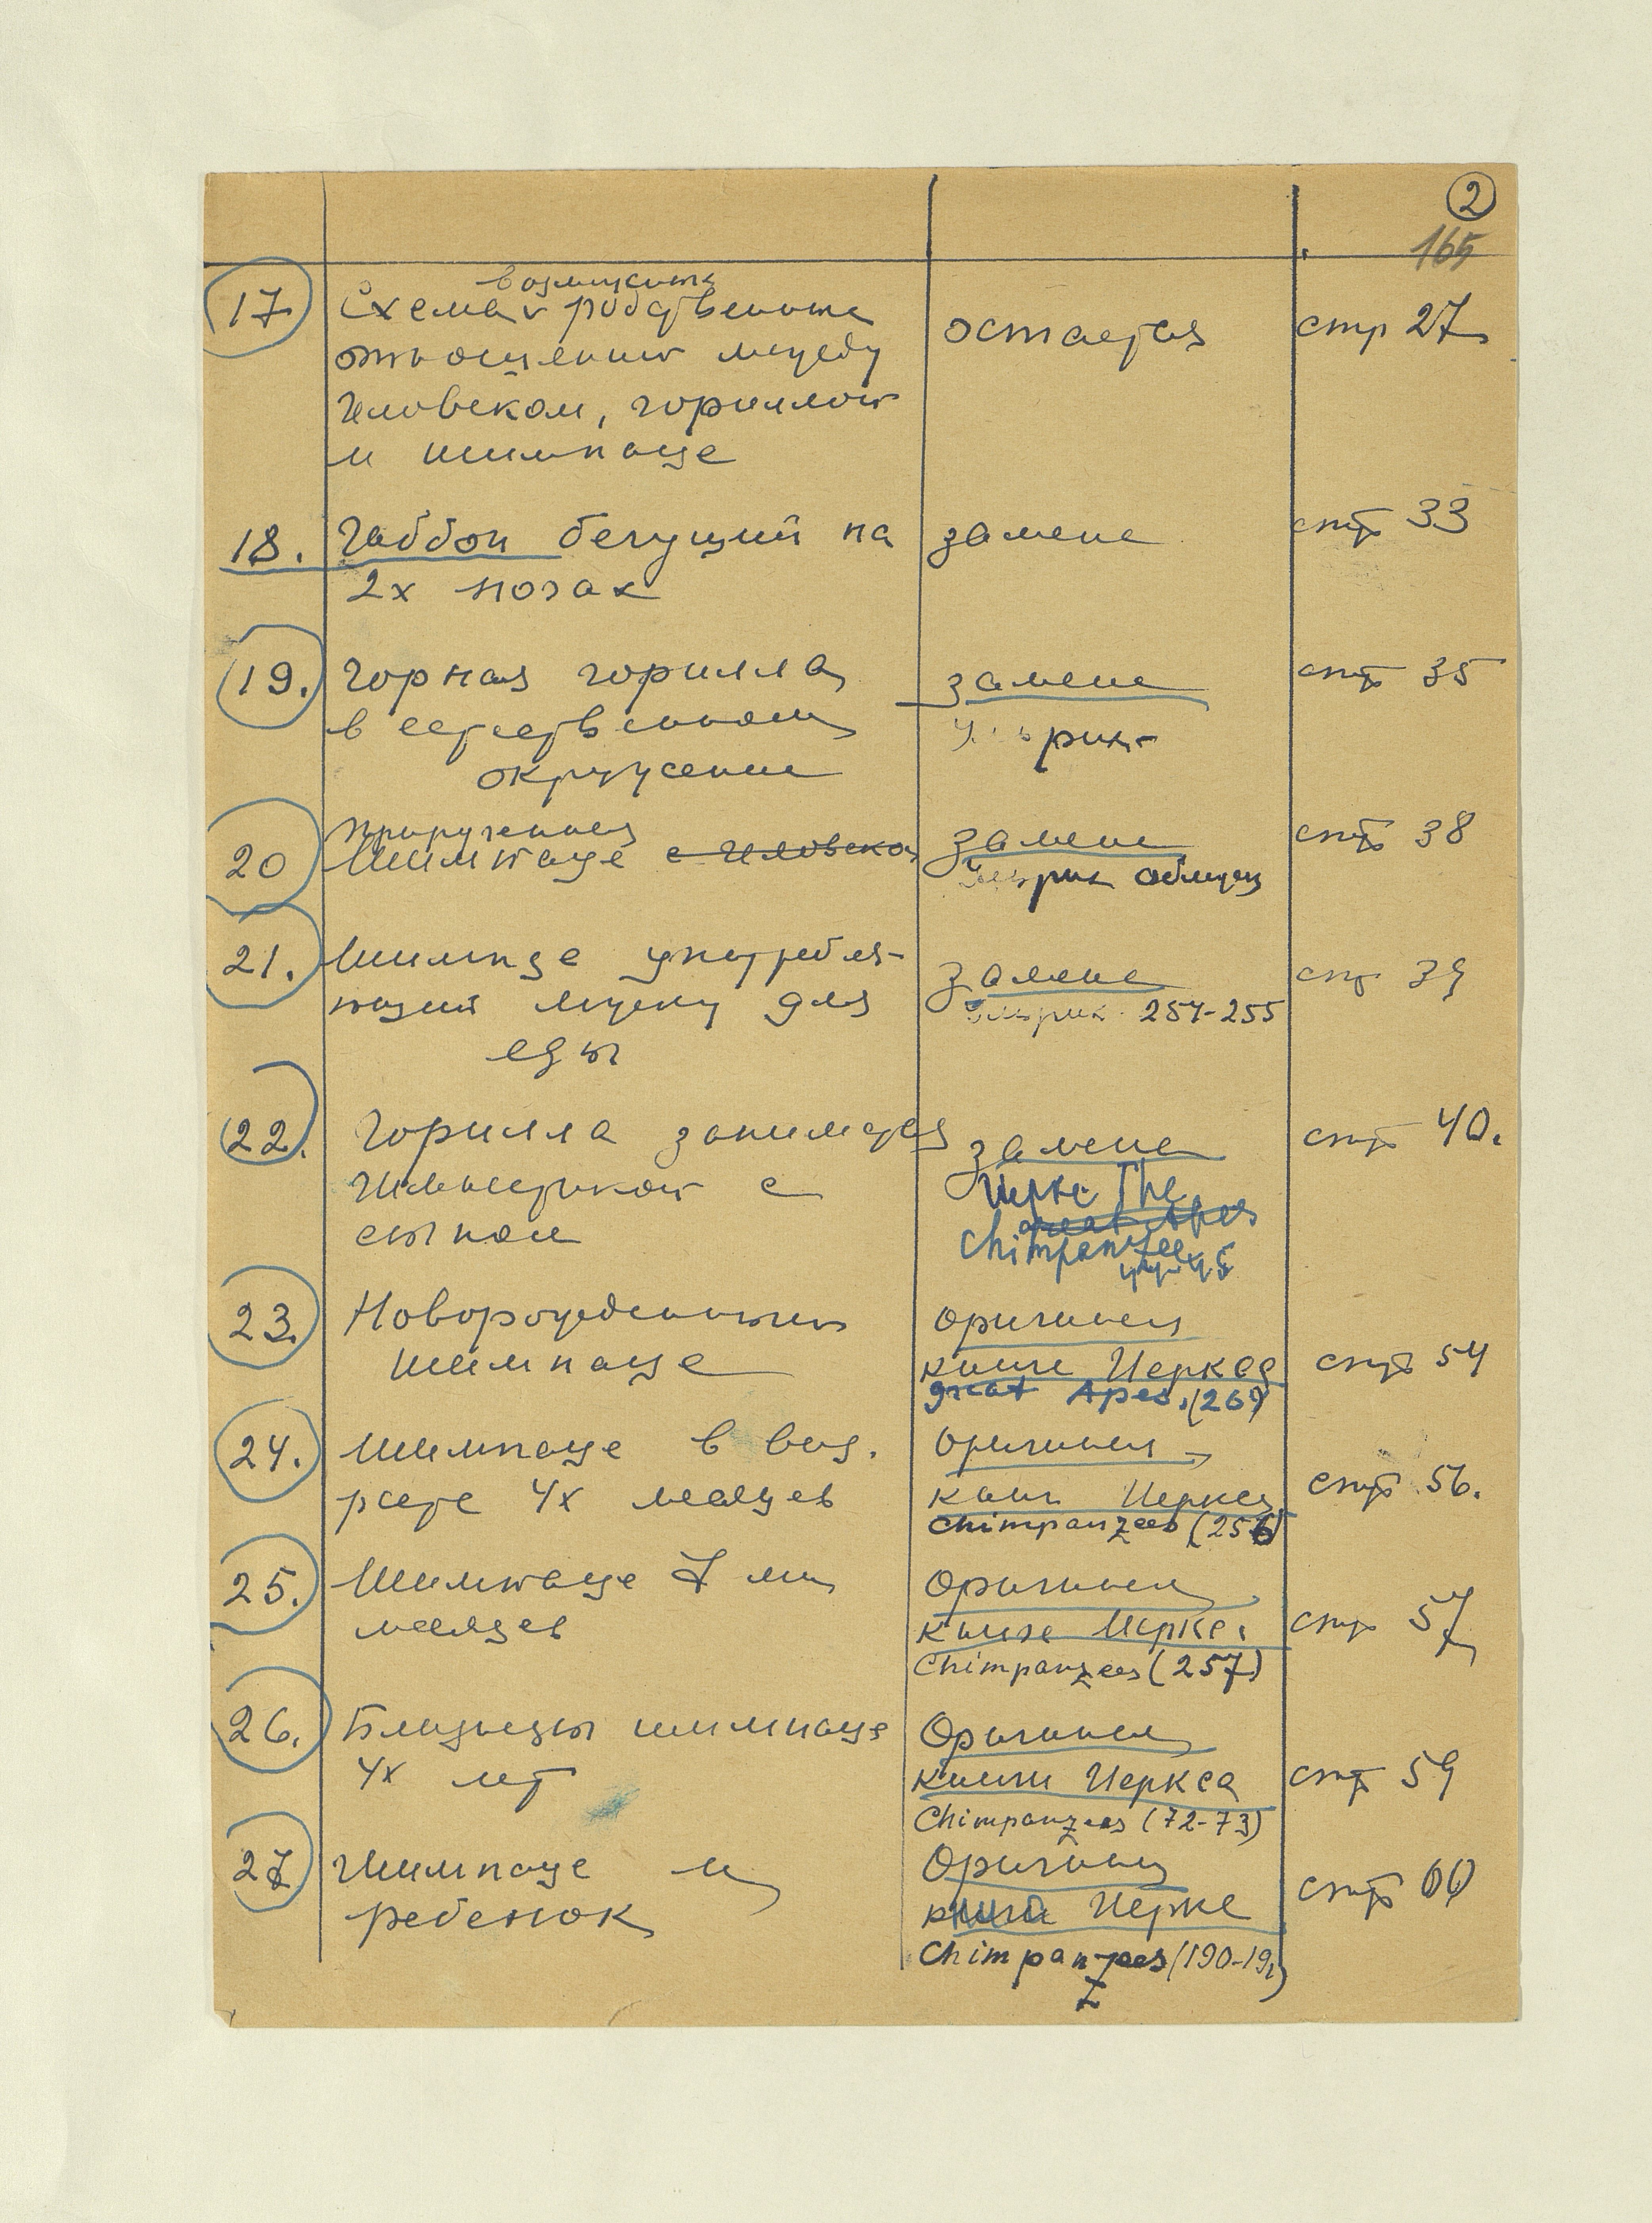 2
165
17. возможных
Схема родственных остается стр 27
отношений между
человеком, гориллой
и шимпанзе
18. Гиббон бегущий на замена стр 33
2х ногах
19. Горная горилла замена стр 35
в естественном
окружении
прирученный
20 Шимпанзе с человеком замена стр 38
21. Шимпанзе употребля- замена стр 39
ющий для 254-255
еды
22. Горилла занимается замена стр 40.
с Иеркс The
сыном great Apes
Chimpanzees
23. Новорожденный оригинал
шимпанзе книги Иеркса стр 54
great Apes. (269)
24. Шимпанзе в воз. оригинал
расте 4х месяцев книги Иеркса стр 56.
Chimpanzees (256)
25. Шимпанзе 7 ми Оригинал
месяцев книге Иеркса стр 57
Chimpanzees (257)
26. Близнецы шимпанзе Оригинал
4х лет книги Иеркса стр 59
Chimpanzees (72-73)
27 Шимпанзе и Оригинал
ребенок книги Иеркс стр 60
Chimpanzees (190-191)
Z